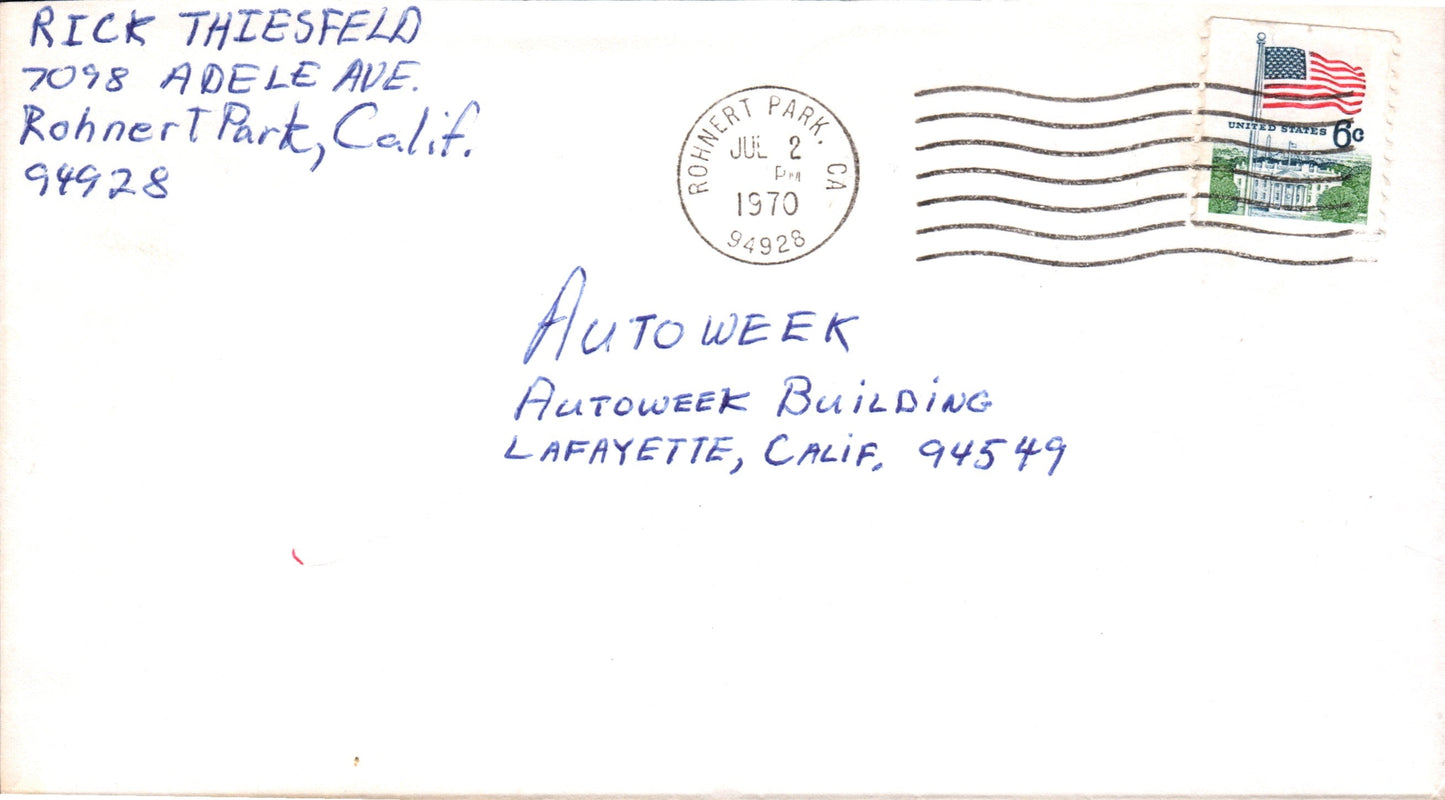 RICK THIESFELD
7098 ADELE AVE.
Rohnert Park, Calif.
94928
ROHNERT PARK, CA
JUL 2
PM
1970
94928
UNITED STATES 6c
AUTOWEEK
AUTOWEEK BUiLDiNG
LAFAYETTE, CALiF. 94549